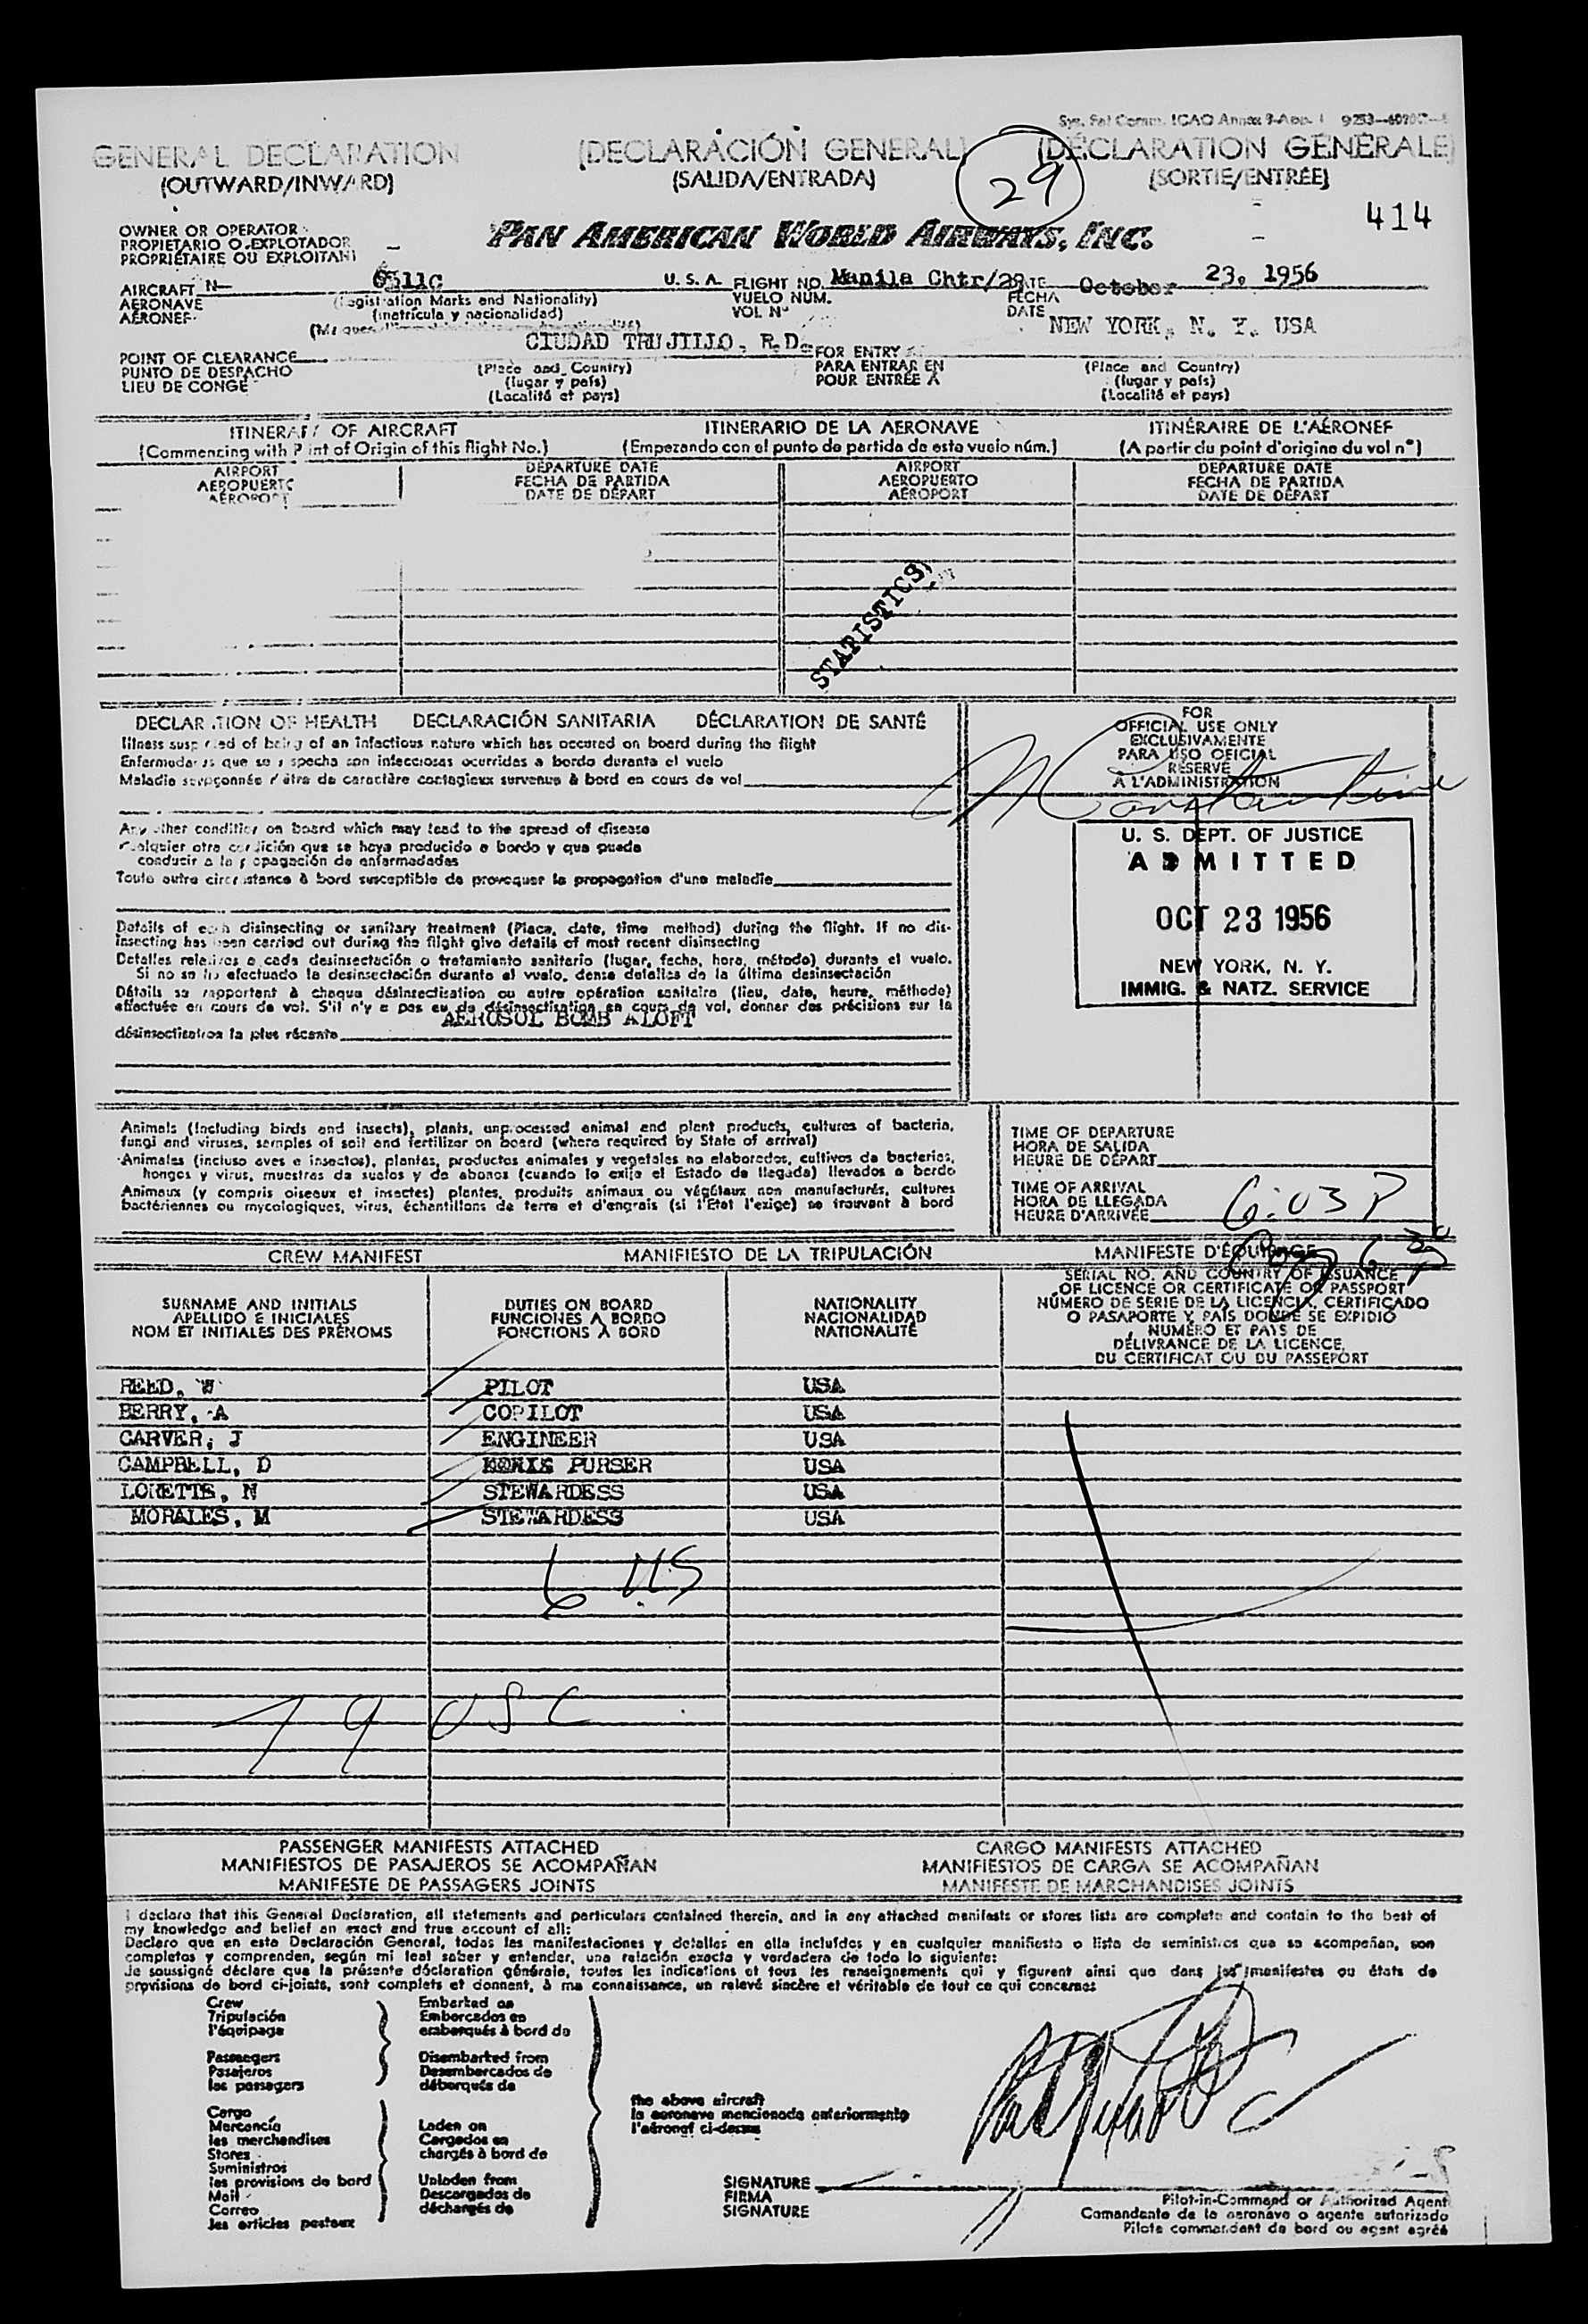 Sys. Fal Comm. ICAO Annex 9-App. 1 9253
GENERAL DECLARATION (DECLARACIÓN GENERAL) (DÉCLARATION GÉNÉRALE)
(OUTWARD/INWARD) (SALIDA/ENTRADA) (SORTIE/ENTRÉE)
29
414
OWNER OR OPERATOR
PROPIETARIO O EXPLOTADOR
PROPRIÉTAIRE OU EXPLOITANT
PAN AMERICAN WORLD AIRWAYS, INC.
AIRCRAFT N- 6511C U. S. A. FLIGHT NO. Manila Chtr/23 DATE October 23, 1956
AERONAVE (Registration Marks and Nationality) VUELO NÚM. FECHA
AÉRONEF (matrícula y nacionalidad) VOL Nº DATE
NEW YORK, N. Y. USA
CIUDAD TRUJILLO, R.D.
POINT OF CLEARANCE FOR ENTRY
PUNTO DE DESPACHO (Place and Country) PARA ENTRAR EN (Place and Country)
LIEU DE CONGÉ (lugar y país) POUR ENTRÉE À (lugar y país)
(Localité et pays) (Localité et pays)
ITINERARY OF AIRCRAFT ITINERARIO DE LA AERONAVE ITINÉRAIRE DE L'AÉRONEF
(Commencing with Point of Origin of this flight No.) (Empezando con el punto de partida de este vuelo núm.) (A partir du point d'origine du vol n°)
AIRPORT DEPARTURE DATE AIRPORT DEPARTURE DATE
AEROPUERTO FECHA DE PARTIDA AEROPUERTO FECHA DE PARTIDA
AÉROPORT DATE DE DÉPART AÉROPORT DATE DE DÉPART
STATISTICS
DECLARATION OF HEALTH DECLARACIÓN SANITARIA DÉCLARATION DE SANTÉ
Illness suspected of being of an infectious nature which has occured on board during the flight
Enfermedades que se sospecha son infecciosas ocurridas a bordo durante el vuelo
Maladie soupçonnée d'être de caractère contagieux survenue à bord en cours de vol
Any other condition on board which may lead to the spread of disease
Cualquier otra condición que se haya producido a bordo y que pueda
conducir a la propagación de enfermedades
Toute autre circonstance à bord susceptible de provoquer la propagation d'une maladie
Details of each disinsecting or sanitary treatment (Place, date, time method) during the flight. If no dis-
insecting has been carried out during the flight give details of most recent disinsecting
Detalles relativos a cada desinsectación o tratamiento sanitario (lugar, fecha, hora, método) durante el vuelo.
Si no se ha efectuado la desinsectación durante el vuelo, dense detalles de la última desinsectación
Détails se rapportant à chaque désinsectisation ou autre opération sanitaire (lieu, date, heure, méthode)
effectuée en cours de vol. S'il n'y a pas eu de désinsectisation en cours de vol, donner des précisions sur la
AEROSOL BOMB ALOFT
désinsectisation la plus récente
FOR
OFFICIAL USE ONLY
EXCLUSIVAMENTE
PARA USO OFICIAL
RÉSERVÉ
À L'ADMINISTRATION
U. S. DEPT. OF JUSTICE
ADMITTED
OCT 23 1956
NEW YORK, N. Y.
IMMIG. & NATZ. SERVICE
Animals (including birds and insects), plants, unprocessed animal and plant products, cultures of bacteria,
fungi and viruses, samples of soil and fertilizer on board (where required by State of arrival)
Animales (incluso aves e insectos), plantas, productos animales y vegetales no elaborados, cultivos de bacterias,
hongos y virus, muestras de suelos y de abonos (cuando lo exije el Estado de llegada) llevados a bordo
Animaux (y compris oiseaux et insectes) plantes, produits animaux ou végétaux non manufacturés, cultures
bactériennes ou mycologiques, virus, échantillons de terre et d'engrais (si l'Etat l'exige) se trouvant à bord
TIME OF DEPARTURE
HORA DE SALIDA
HEURE DE DÉPART
TIME OF ARRIVAL
HORA DE LLEGADA
HEURE D'ARRIVÉE 6:03 P
CREW MANIFEST MANIFIESTO DE LA TRIPULACIÓN MANIFESTE D'ÉQUIPAGE
SURNAME AND INITIALS DUTIES ON BOARD NATIONALITY SERIAL NO. AND COUNTRY OF ISSUANCE
APELLIDO E INICIALES FUNCIONES A BORDO NACIONALIDAD OF LICENCE OR CERTIFICATE OR PASSPORT
NOM ET INITIALES DES PRÉNOMS FONCTIONS À BORD NATIONALITÉ NÚMERO DE SERIE DE LA LICENCIA, CERTIFICADO
O PASAPORTE Y PAÍS DONDE SE EXPIDIÓ
NUMÉRO ET PAYS DE
DÉLIVRANCE DE LA LICENCE,
DU CERTIFICAT OU DU PASSEPORT
REED, W PILOT USA
BERRY, A COPILOT USA
CARVER, J ENGINEER USA
CAMPBELL, D PURSER USA
LORETTE, N STEWARDESS USA
MORALES, M STEWARDESS USA
6 US
79 USC
PASSENGER MANIFESTS ATTACHED CARGO MANIFESTS ATTACHED
MANIFIESTOS DE PASAJEROS SE ACOMPAÑAN MANIFIESTOS DE CARGA SE ACOMPAÑAN
MANIFESTE DE PASSAGERS JOINTS MANIFESTE DE MARCHANDISES JOINTS
I declare that this General Declaration, all statements and particulars contained therein, and in any attached manifests or stores lists are complete and contain to the best of
my knowledge and belief an exact and true account of all:
Declaro que en esta Declaración General, todas las manifestaciones y detalles en ella incluídos y en cualquier manifiesto o lista de suministros que se acompañan, son
completos y comprenden, según mi leal saber y entender, una relación exacta y verdadera de todo lo siguiente:
Je soussigné déclare que la présente déclaration générale, toutes les indications et tous les renseignements qui y figurent ainsi que dans les manifestes ou états de
provisions de bord ci-joints, sont complets et donnent, à ma connaissance, un relevé sincère et véritable de tout ce qui concerne:
Crew Embarked on
Tripulación Embarcados en
l'équipage embarqués à bord de
Passengers Disembarked from
Pasajeros Desembarcados de
les passagers débarqués de
the above aircraft
la aeronave mencionada anteriormente
l'aéronef ci-dessus
Cargo
Mercancía Laden on
les merchandises Cargados en
Stores chargés à bord de
Suministros
les provisions de bord Unladen from
Mail Descargados de
Correo déchargés de
les articles postaux
SIGNATURE
FIRMA
SIGNATURE
Pilot-in-Command or Authorized Agent
Comandante de la aeronave o agente autorizado
Pilote commandant de bord ou agent agréé